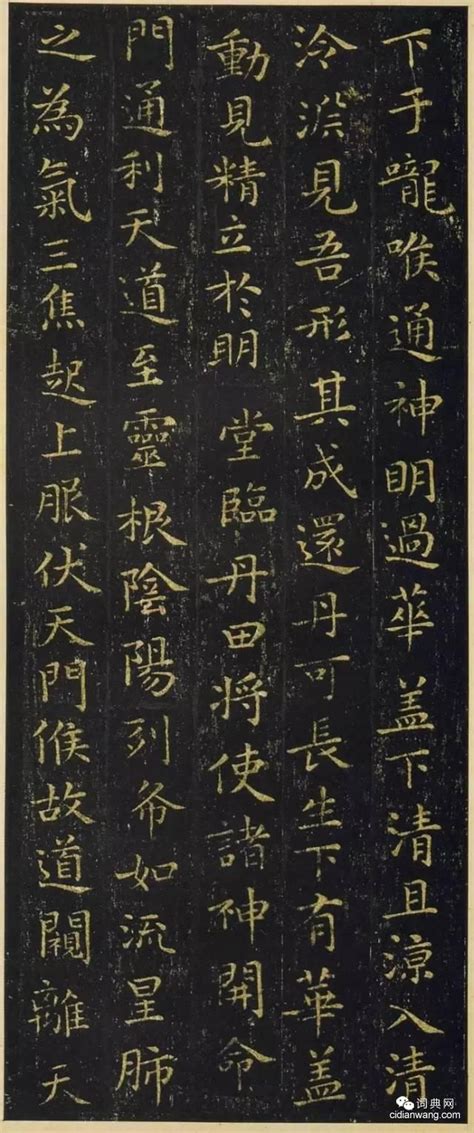 下于嚨喉通神明過華盖下清且涼入清
泠渊見吾形其成還丹可長生下有華盖
動見精立於明堂臨丹田将使諸神開命
門通利天道至靈根陰陽列布如流星肺
之為氣三焦起上服伏天門候故道闚離天
词典网
cidianwang.com